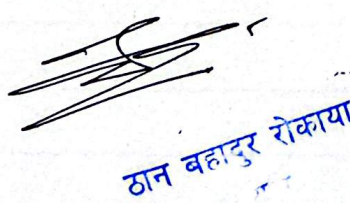 ठान बहादुर रोकाया